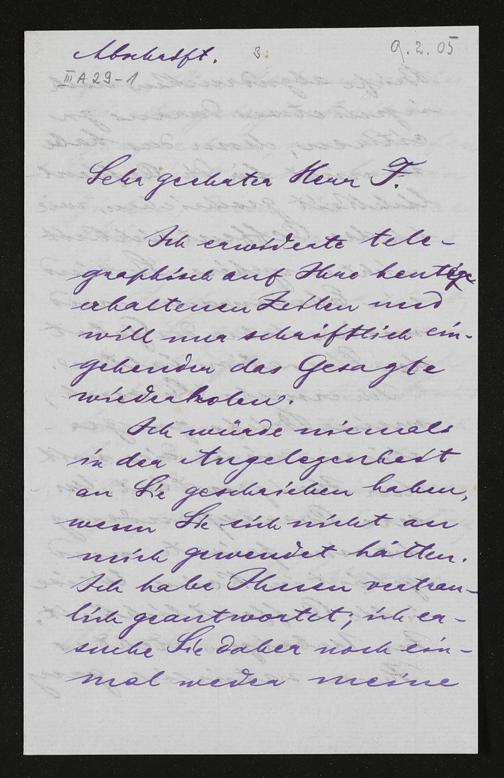 Abschrift. 3. 9.2.05
III A 29-1
Sehr geehrter Herr F.
Ich erwiderte tele-
graphisch auf Ihre heutige
erhaltenen Zeilen und
will nur schriftlich ein-
gehender das Gesagte
wiederholen.
Ich würde niemals
in der Angelegenheit
an Sie geschrieben haben,
wenn Sie sich nicht an
mich gewendet hätten.
Ich habe Ihnen vertrau-
lich geantwortet; ich er-
suche Sie daher noch ein-
mal weder meine